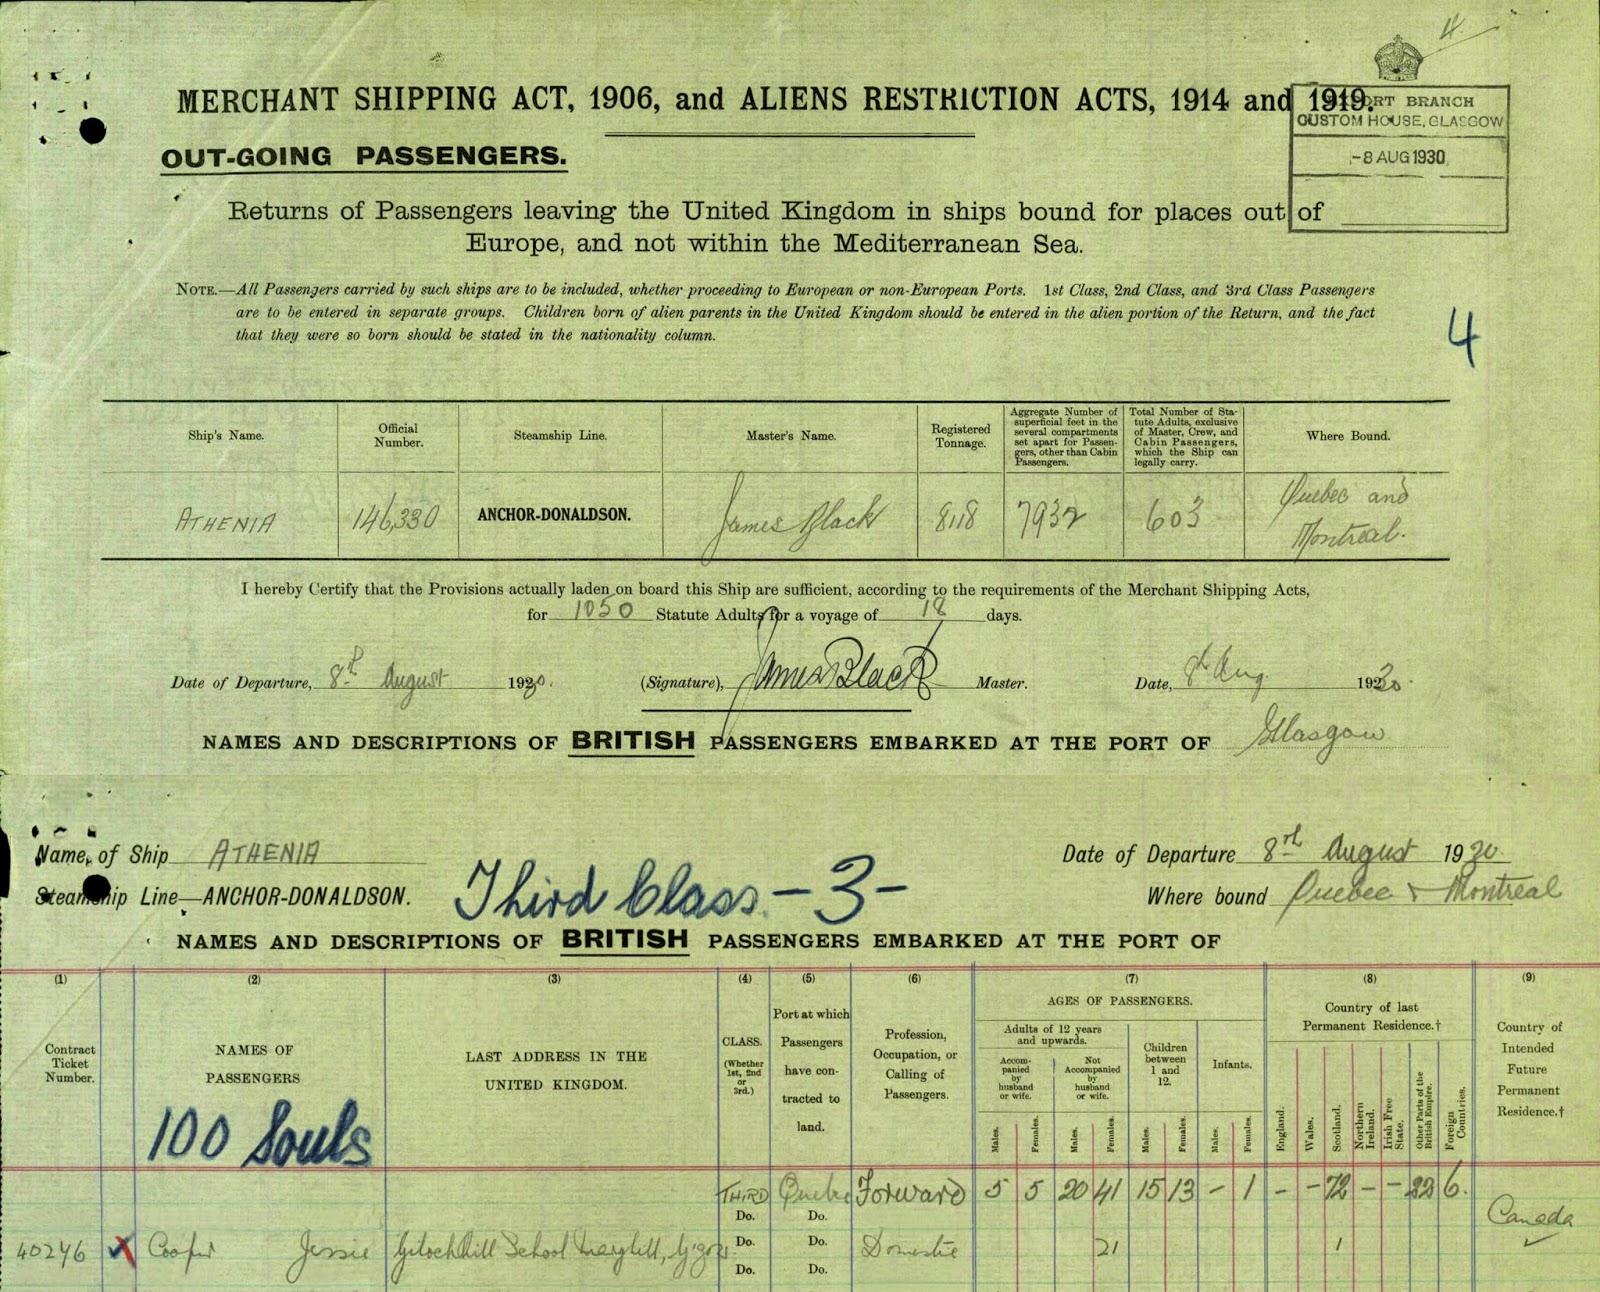 4
MERCHANT SHIPPING ACT, 1906, and ALIENS RESTRICTION ACTS, 1914 and 1919.
PORT BRANCH
CUSTOM HOUSE, GLASGOW
-8 AUG 1930
OUT-GOING PASSENGERS.
Returns of Passengers leaving the United Kingdom in ships bound for places out of
Europe, and not within the Mediterranean Sea.
NOTE.—All Passengers carried by such ships are to be included, whether proceeding to European or non-European Ports. 1st Class, 2nd Class, and 3rd Class Passengers
are to be entered in separate groups. Children born of alien parents in the United Kingdom should be entered in the alien portion of the Return, and the fact
that they were so born should be stated in the nationality column.
4
Ship's Name.
Official
Number.
Steamship Line.
Master's Name.
Registered
Tonnage.
Aggregate Number of
superficial feet in the
several compartments
set apart for Passen-
gers, other than Cabin
Passengers.
Total Number of Sta-
tute Adults, exclusive
of Master, Crew, and
Cabin Passengers,
which the Ship can
legally carry.
Where Bound.
ATHENIA
146,330
ANCHOR-DONALDSON.
James Black
8118
7932
603
Quebec and
Montreal.
I hereby Certify that the Provisions actually laden on board this Ship are sufficient, according to the requirements of the Merchant Shipping Acts,
for 1050 Statute Adults for a voyage of 18 days.
Date of Departure, 8th August 1930. (Signature), James Black Master. Date, 8th Aug. 1930.
NAMES AND DESCRIPTIONS OF BRITISH PASSENGERS EMBARKED AT THE PORT OF Glasgow
Name of Ship ATHENIA
Date of Departure 8th August 1930
Steamship Line—ANCHOR-DONALDSON.
Third Class -3-
Where bound Quebec & Montreal
NAMES AND DESCRIPTIONS OF BRITISH PASSENGERS EMBARKED AT THE PORT OF
(1)
Contract
Ticket
Number.
(2)
NAMES OF
PASSENGERS
100 Souls
(3)
LAST ADDRESS IN THE
UNITED KINGDOM.
(4)
CLASS.
(Whether
1st, 2nd
or
3rd.)
(5)
Port at which
Passengers
have con-
tracted to
land.
(6)
Profession,
Occupation, or
Calling of
Passengers.
(7)
AGES OF PASSENGERS.
Adults of 12 years
and upwards.
Accom-
panied
by
husband
or wife.
Not
Accompanied
by
husband
or wife.
Children
between
1 and
12.
Infants.
Males.
Females.
Males.
Females.
Males.
Females.
Males.
Females.
(8)
Country of last
Permanent Residence.†
England.
Wales.
Scotland.
Northern
Ireland.
Irish Free
State.
Other Parts of the
British Empire.
Foreign
Countries.
(9)
Country of
Intended
Future
Permanent
Residence.†
THIRD Quebec Forward 5 5 20 41 15 13 - 1 - - 72 - - 22 6.
Do. Do.
Canada
40246 Cooper Jessie Hill School Maryhill, Do. Do. Domestic 21 1
Do. Do.